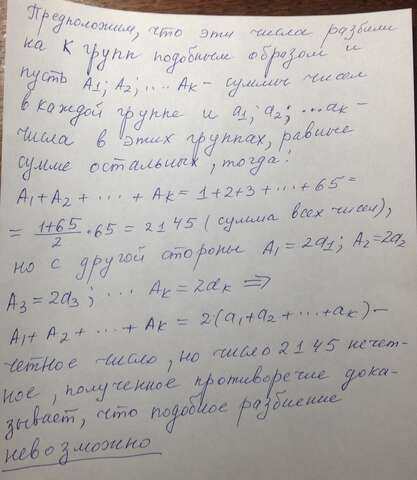 Предположим, что эти числа разбили
на К групп подобным образом и
пусть A₁; A₂; .... Aк - суммы чисел
в каждой группе и a₁; a₂; ... aк -
числа в этих группах, равные
сумме остальных, тогда:
A₁ + A₂ + ... + Aк = 1+2+3+ ... + 65 =
= (1+65)/2 · 65 = 2145 (сумма всех чисел),
но с другой стороны A₁ = 2a₁; A₂ = 2a₂
A₃ = 2a₃; ... Aк = 2aк ⇒
A₁ + A₂ + ... + Aк = 2(a₁ + a₂ + ... + aк) -
четное число, но число 2145 нечет-
ное, полученное противоречие дока-
зывает, что подобное разбиение
невозможно